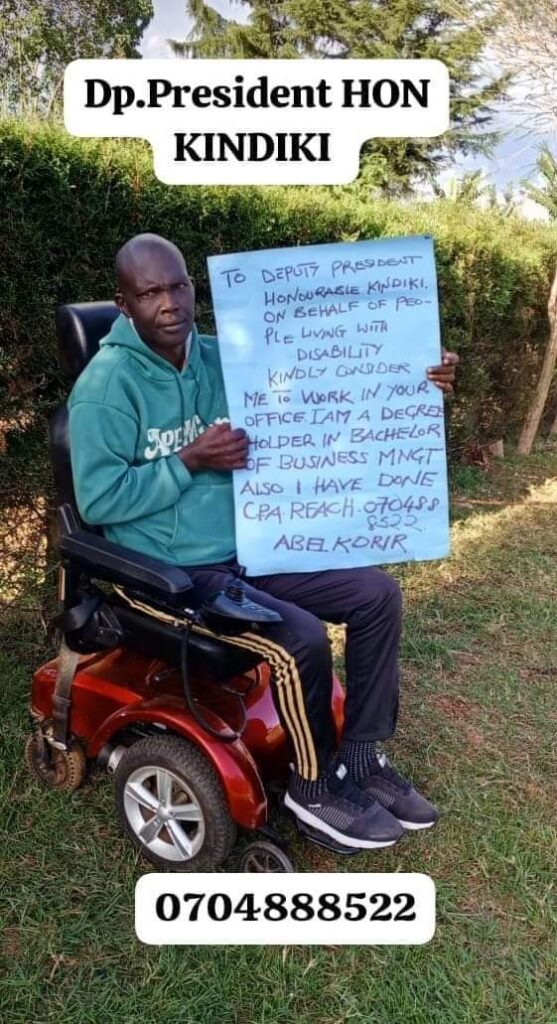 Dp.President HON
KINDIKI
TO DEPUTY PRESIDENT
HONOURABLE KINDIKI.
ON BEHALF OF PEO-
PLE LIVING WITH
DISABILITY
KINDLY CONSIDER
ME TO WORK IN YOUR
OFFICE. I AM A DEGREE
HOLDER IN BACHELOR
OF BUSINESS MNGT
ALSO I HAVE DONE
CPA. REACH. 070488
8522
ABEL KORIR
0704888522